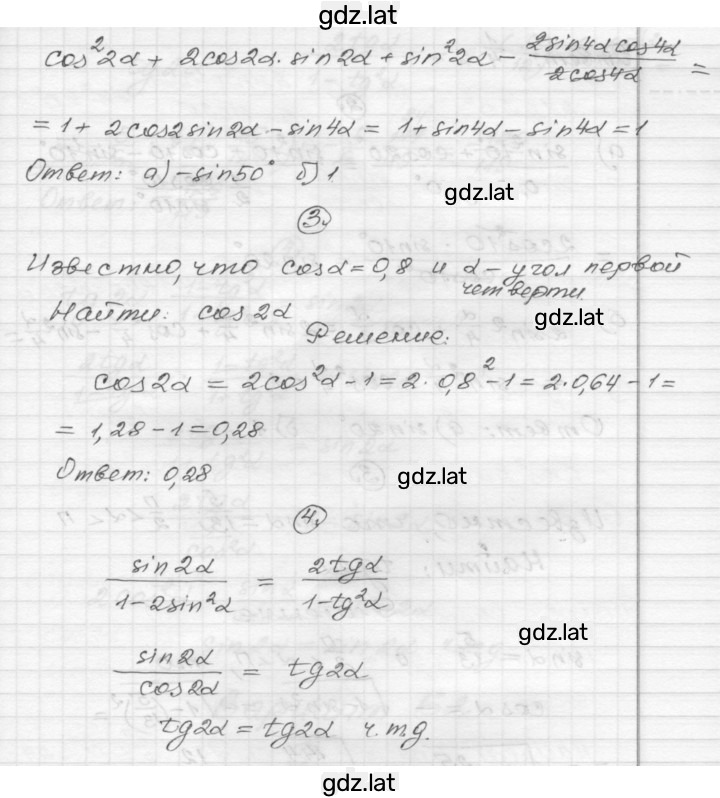 gdz.lat
cos²2α + 2cos2α·sin2α + sin²2α − 2sin4α cos4α / 2cos4α =
= 1 + 2cos2sin2α − sin4α = 1 + sin4α − sin4α = 1
Ответ: а) −sin50° б) 1
gdz.lat
3.
Известно, что cosα = 0,8 и α − угол первой
четверти
Найти: cos2α
gdz.lat
Решение:
cos2α = 2cos²α − 1 = 2·0,8² − 1 = 2·0,64 − 1 =
= 1,28 − 1 = 0,28
Ответ: 0,28
gdz.lat
4.
sin2α / 1 − 2sin²α = 2tgα / 1 − tg²α
gdz.lat
sin2α / cos2α = tg2α
tg2α = tg2α ч.т.д.
gdz.lat